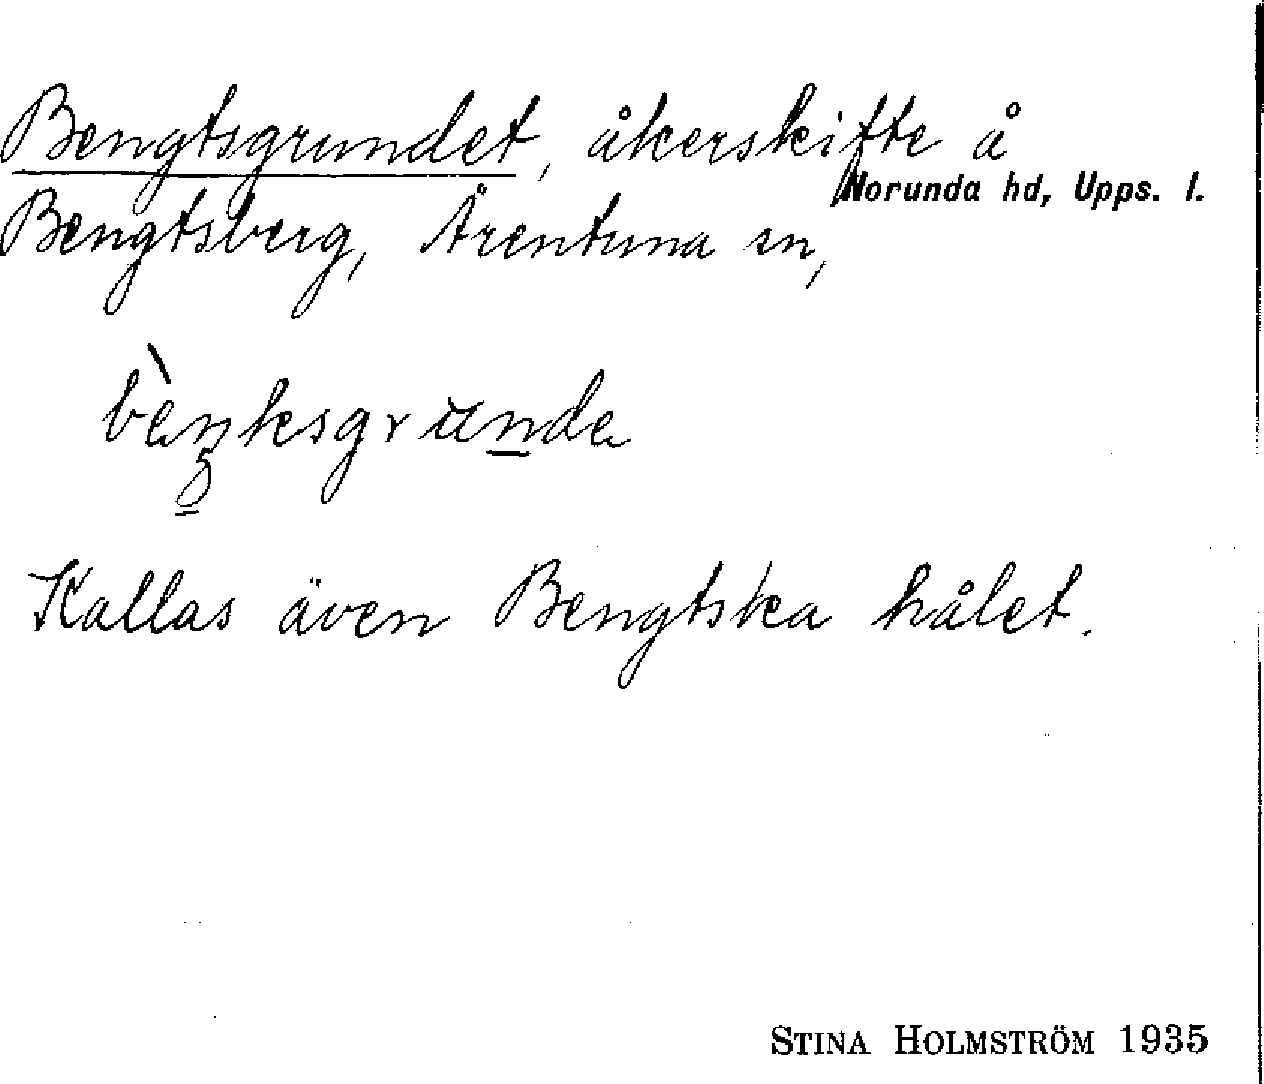 Bengtsgrundet, åkerskifte å
Norunda hd, Upps. l.
Bengtsberg, Ärentuna sn,
Kallas även Bengtska hålet.
STINA HOLMSTRÖM 1935